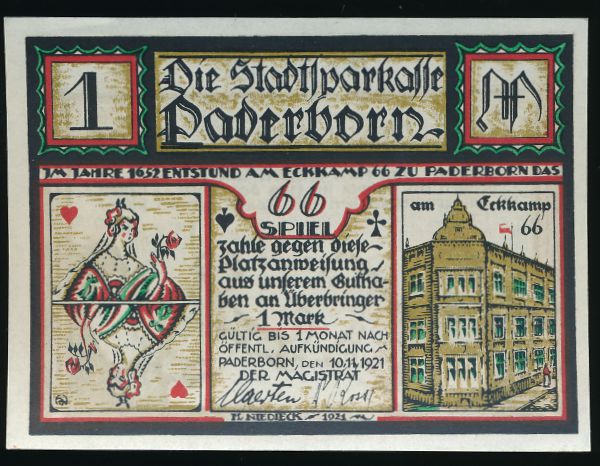 1
Die Stadtsparkasse
Paderborn
M
IM JAHRE 1652 ENTSTUND AM ECKKAMP 66 ZU PADERBORN DAS
66
SPIEL
zahle gegen diese
Platzanweisung
aus unserem Gutha-
ben an Überbringer
1 Mark
GÜLTIG BIS 1 MONAT NACH
ÖFFENTL. AUFKÜNDIGUNG
PADERBORN, DEN 10.11.1921
DER MAGISTRAT
am Eckkamp
66
H. NIEDIECK 1921